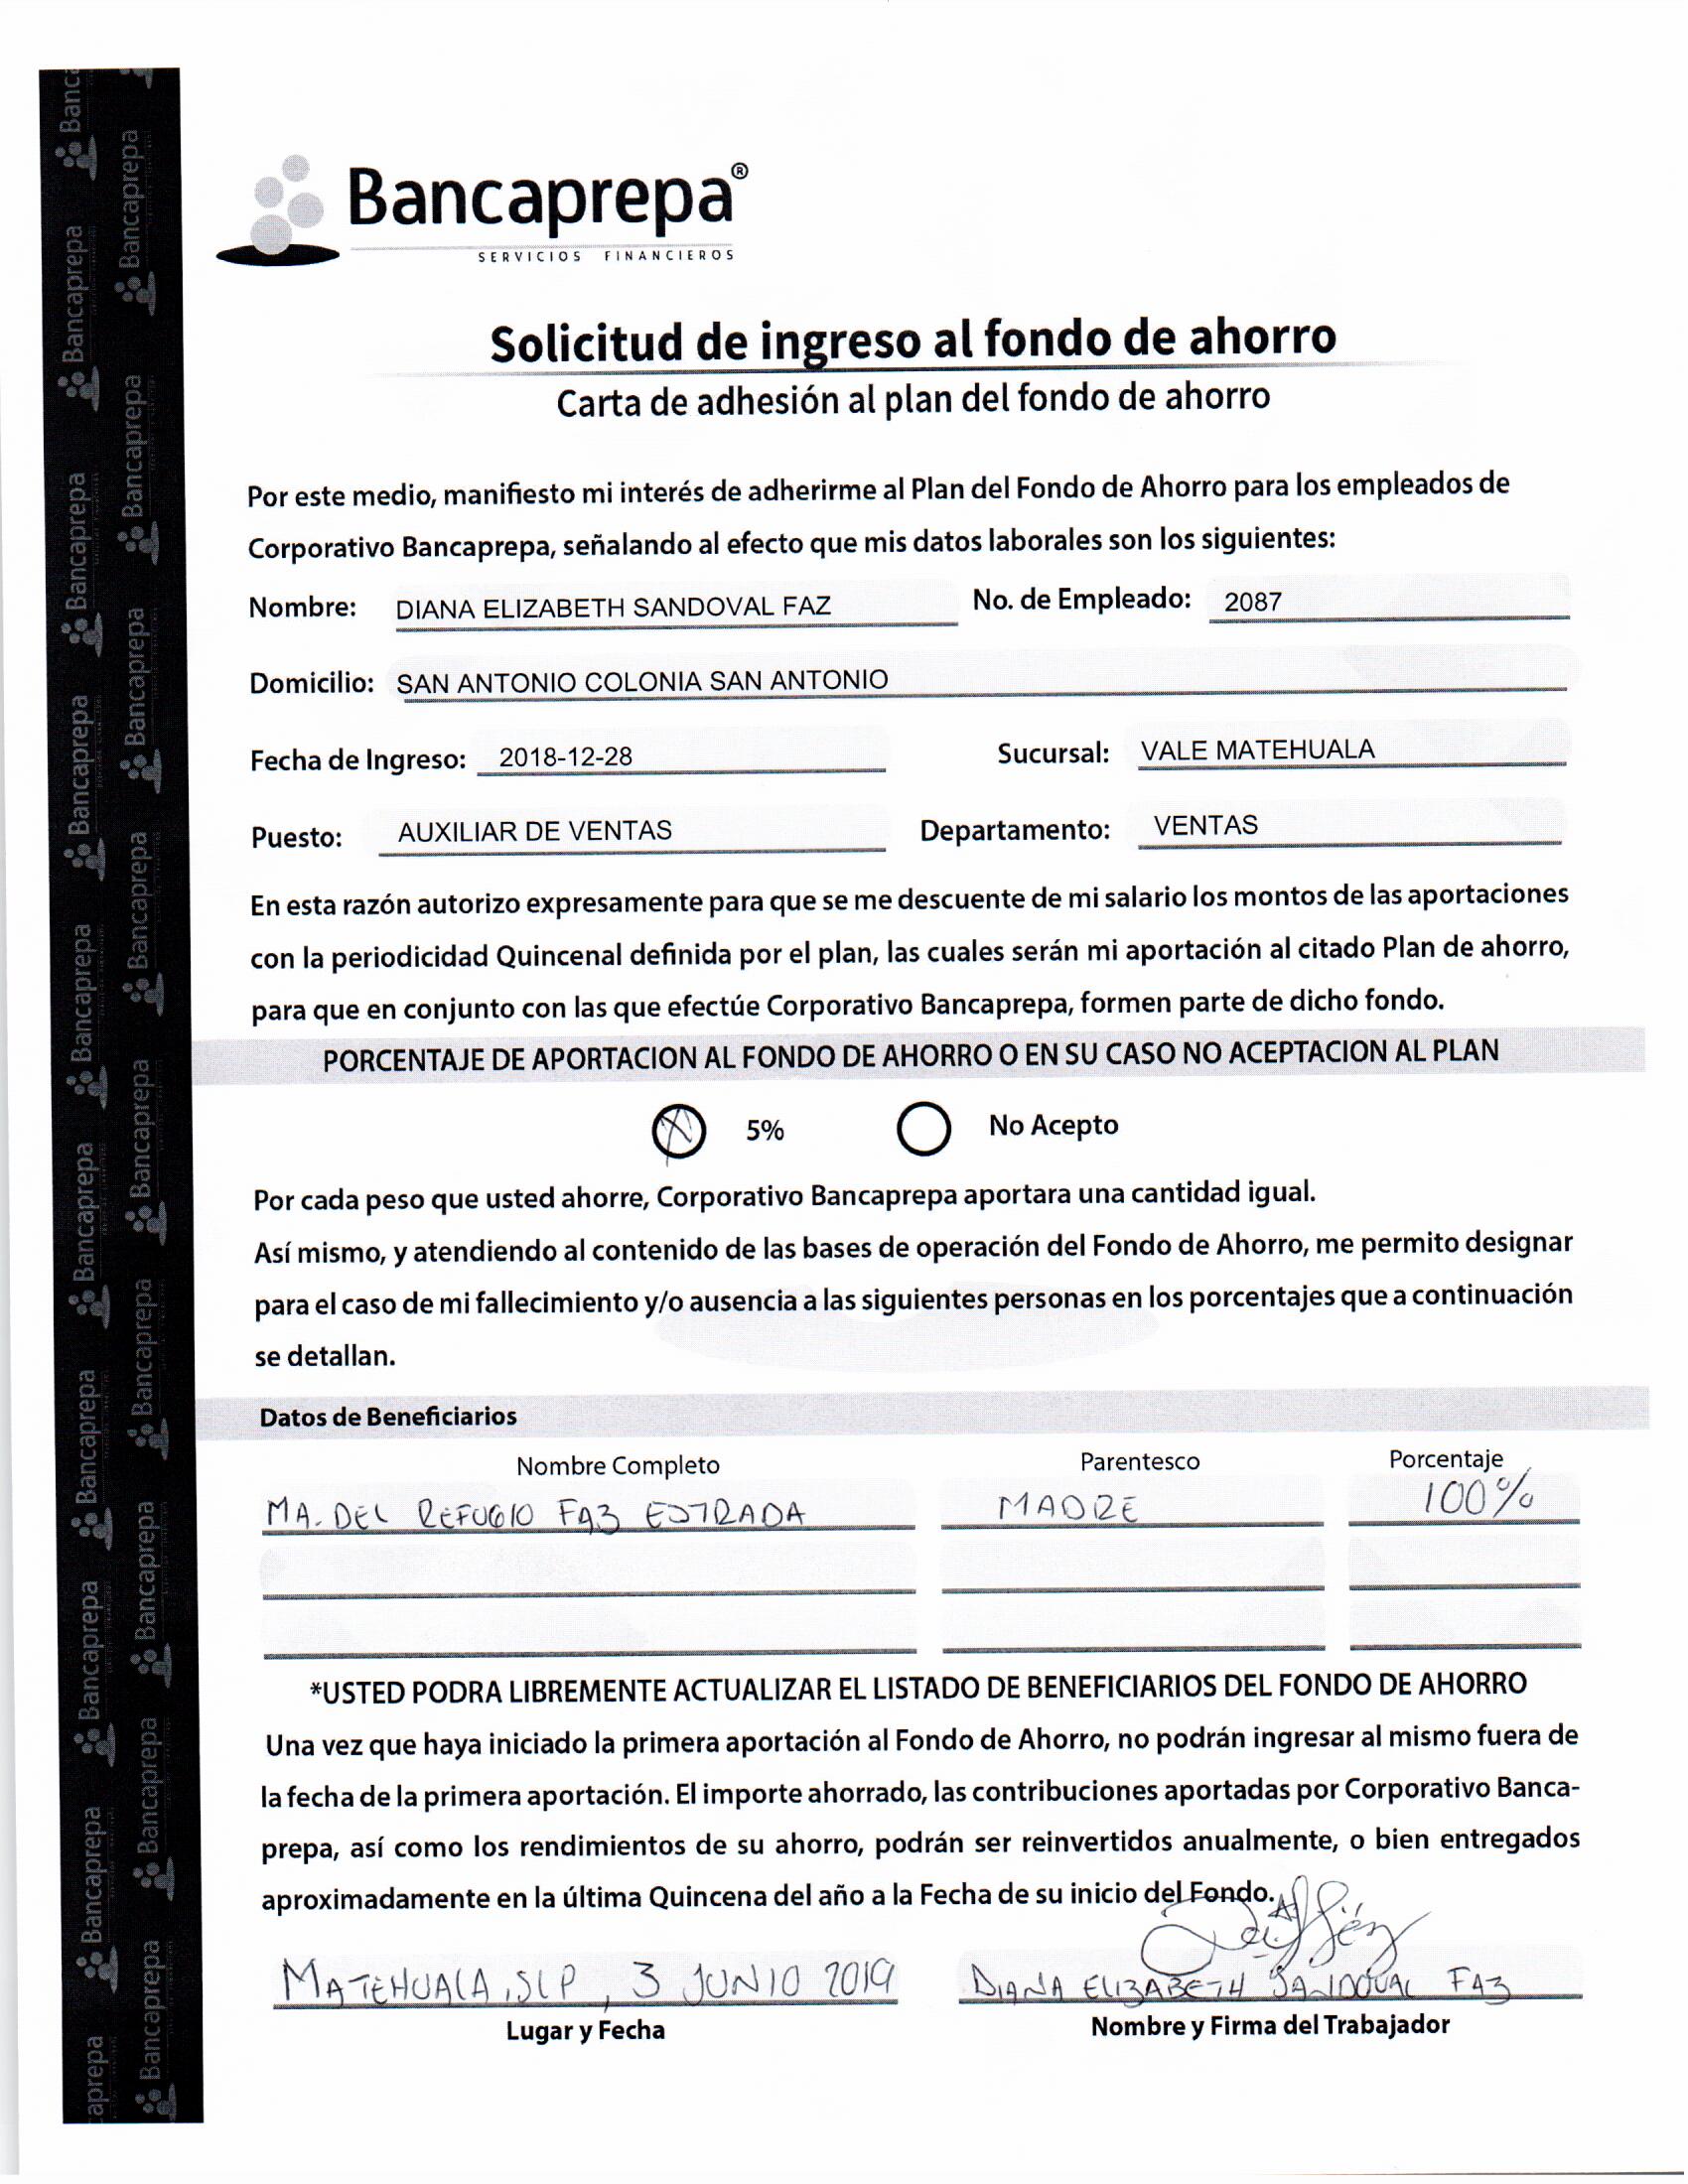 Bancaprepa®
SERVICIOS FINANCIEROS
Solicitud de ingreso al fondo de ahorro
Carta de adhesión al plan del fondo de ahorro
Por este medio, manifiesto mi interés de adherirme al Plan del Fondo de Ahorro para los empleados de
Corporativo Bancaprepa, señalando al efecto que mis datos laborales son los siguientes:
Nombre: DIANA ELIZABETH SANDOVAL FAZ No. de Empleado: 2087
Domicilio: SAN ANTONIO COLONIA SAN ANTONIO
Fecha de Ingreso: 2018-12-28 Sucursal: VALE MATEHUALA
Puesto: AUXILIAR DE VENTAS Departamento: VENTAS
En esta razón autorizo expresamente para que se me descuente de mi salario los montos de las aportaciones
con la periodicidad Quincenal definida por el plan, las cuales serán mi aportación al citado Plan de ahorro,
para que en conjunto con las que efectúe Corporativo Bancaprepa, formen parte de dicho fondo.
PORCENTAJE DE APORTACION AL FONDO DE AHORRO O EN SU CASO NO ACEPTACION AL PLAN
5% No Acepto
Por cada peso que usted ahorre, Corporativo Bancaprepa aportara una cantidad igual.
Así mismo, y atendiendo al contenido de las bases de operación del Fondo de Ahorro, me permito designar
para el caso de mi fallecimiento y/o ausencia a las siguientes personas en los porcentajes que a continuación
se detallan.
Datos de Beneficiarios
Nombre Completo Parentesco Porcentaje
MA. DEL REFUGIO FAZ ESTRADA MADRE 100%
*USTED PODRA LIBREMENTE ACTUALIZAR EL LISTADO DE BENEFICIARIOS DEL FONDO DE AHORRO
Una vez que haya iniciado la primera aportación al Fondo de Ahorro, no podrán ingresar al mismo fuera de
la fecha de la primera aportación. El importe ahorrado, las contribuciones aportadas por Corporativo Banca-
prepa, así como los rendimientos de su ahorro, podrán ser reinvertidos anualmente, o bien entregados
aproximadamente en la última Quincena del año a la Fecha de su inicio del Fondo.
MATEHUALA, SLP, 3 JUNIO 2019 DIANA ELIZABETH SANDOVAL FAZ
Lugar y Fecha Nombre y Firma del Trabajador